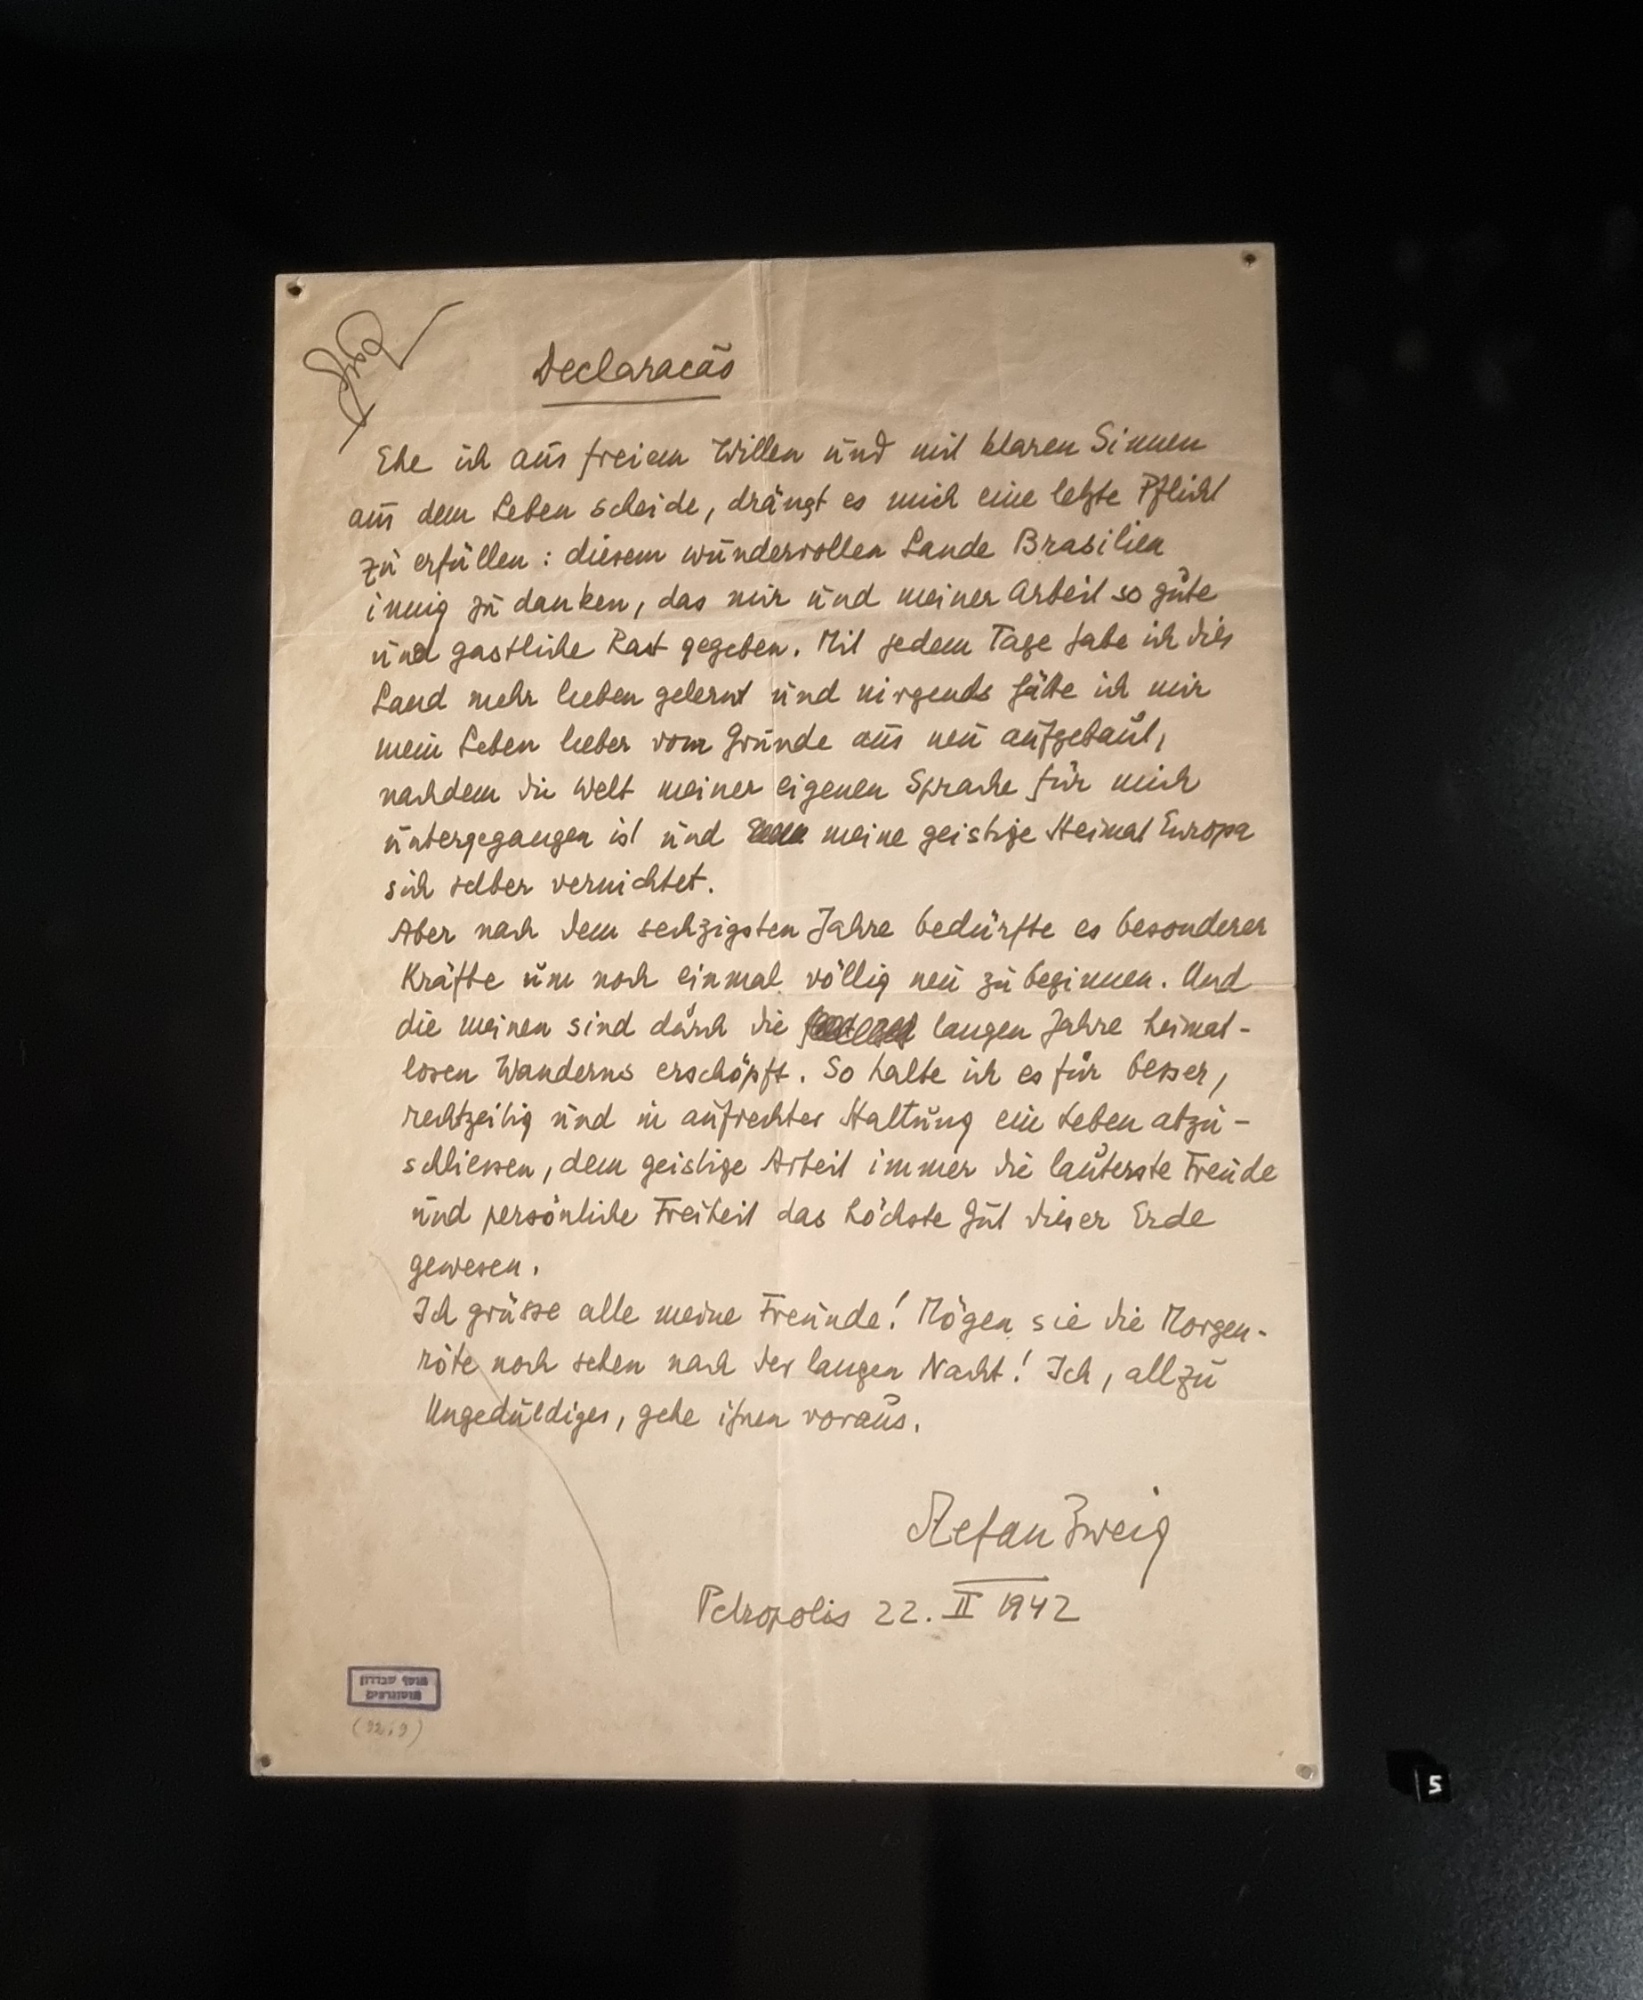 Declaracão
Ehe ich aus freiem Willen und mit klaren Sinnen
aus dem Leben scheide, drängt es mich eine letzte Pflicht
zu erfüllen : diesem wundervollen Lande Brasilien
innig zu danken, das mir und meiner Arbeit so gute
und gastliche Rast gegeben. Mit jedem Tage habe ich dies
Land mehr lieben gelernt und nirgends hätte ich mir
mein Leben lieber vom Grunde aus neu aufgebaut,
nachdem die Welt meiner eigenen Sprache für mich
untergegangen ist und meine geistige Heimat Europa
sich selber vernichtet.
Aber nach dem sechzigsten Jahre bedürfte es besonderer
Kräfte um noch einmal völlig neu zu beginnen. Und
die meinen sind durch die langen Jahre heimat-
losen Wanderns erschöpft. So halte ich es für besser,
rechtzeitig und in aufrechter Haltung ein Leben abzu-
schliessen, dem geistige Arbeit immer die lauterste Freude
und persönliche Freiheit das höchste Gut dieser Erde
gewesen.
Ich grüsse alle meine Freunde! Mögen sie die Morgen-
röte noch sehen nach der langen Nacht! Ich, allzu
Ungeduldiger, gehe ihnen voraus.
Stefan Zweig
Petropolis 22. II 1942
5